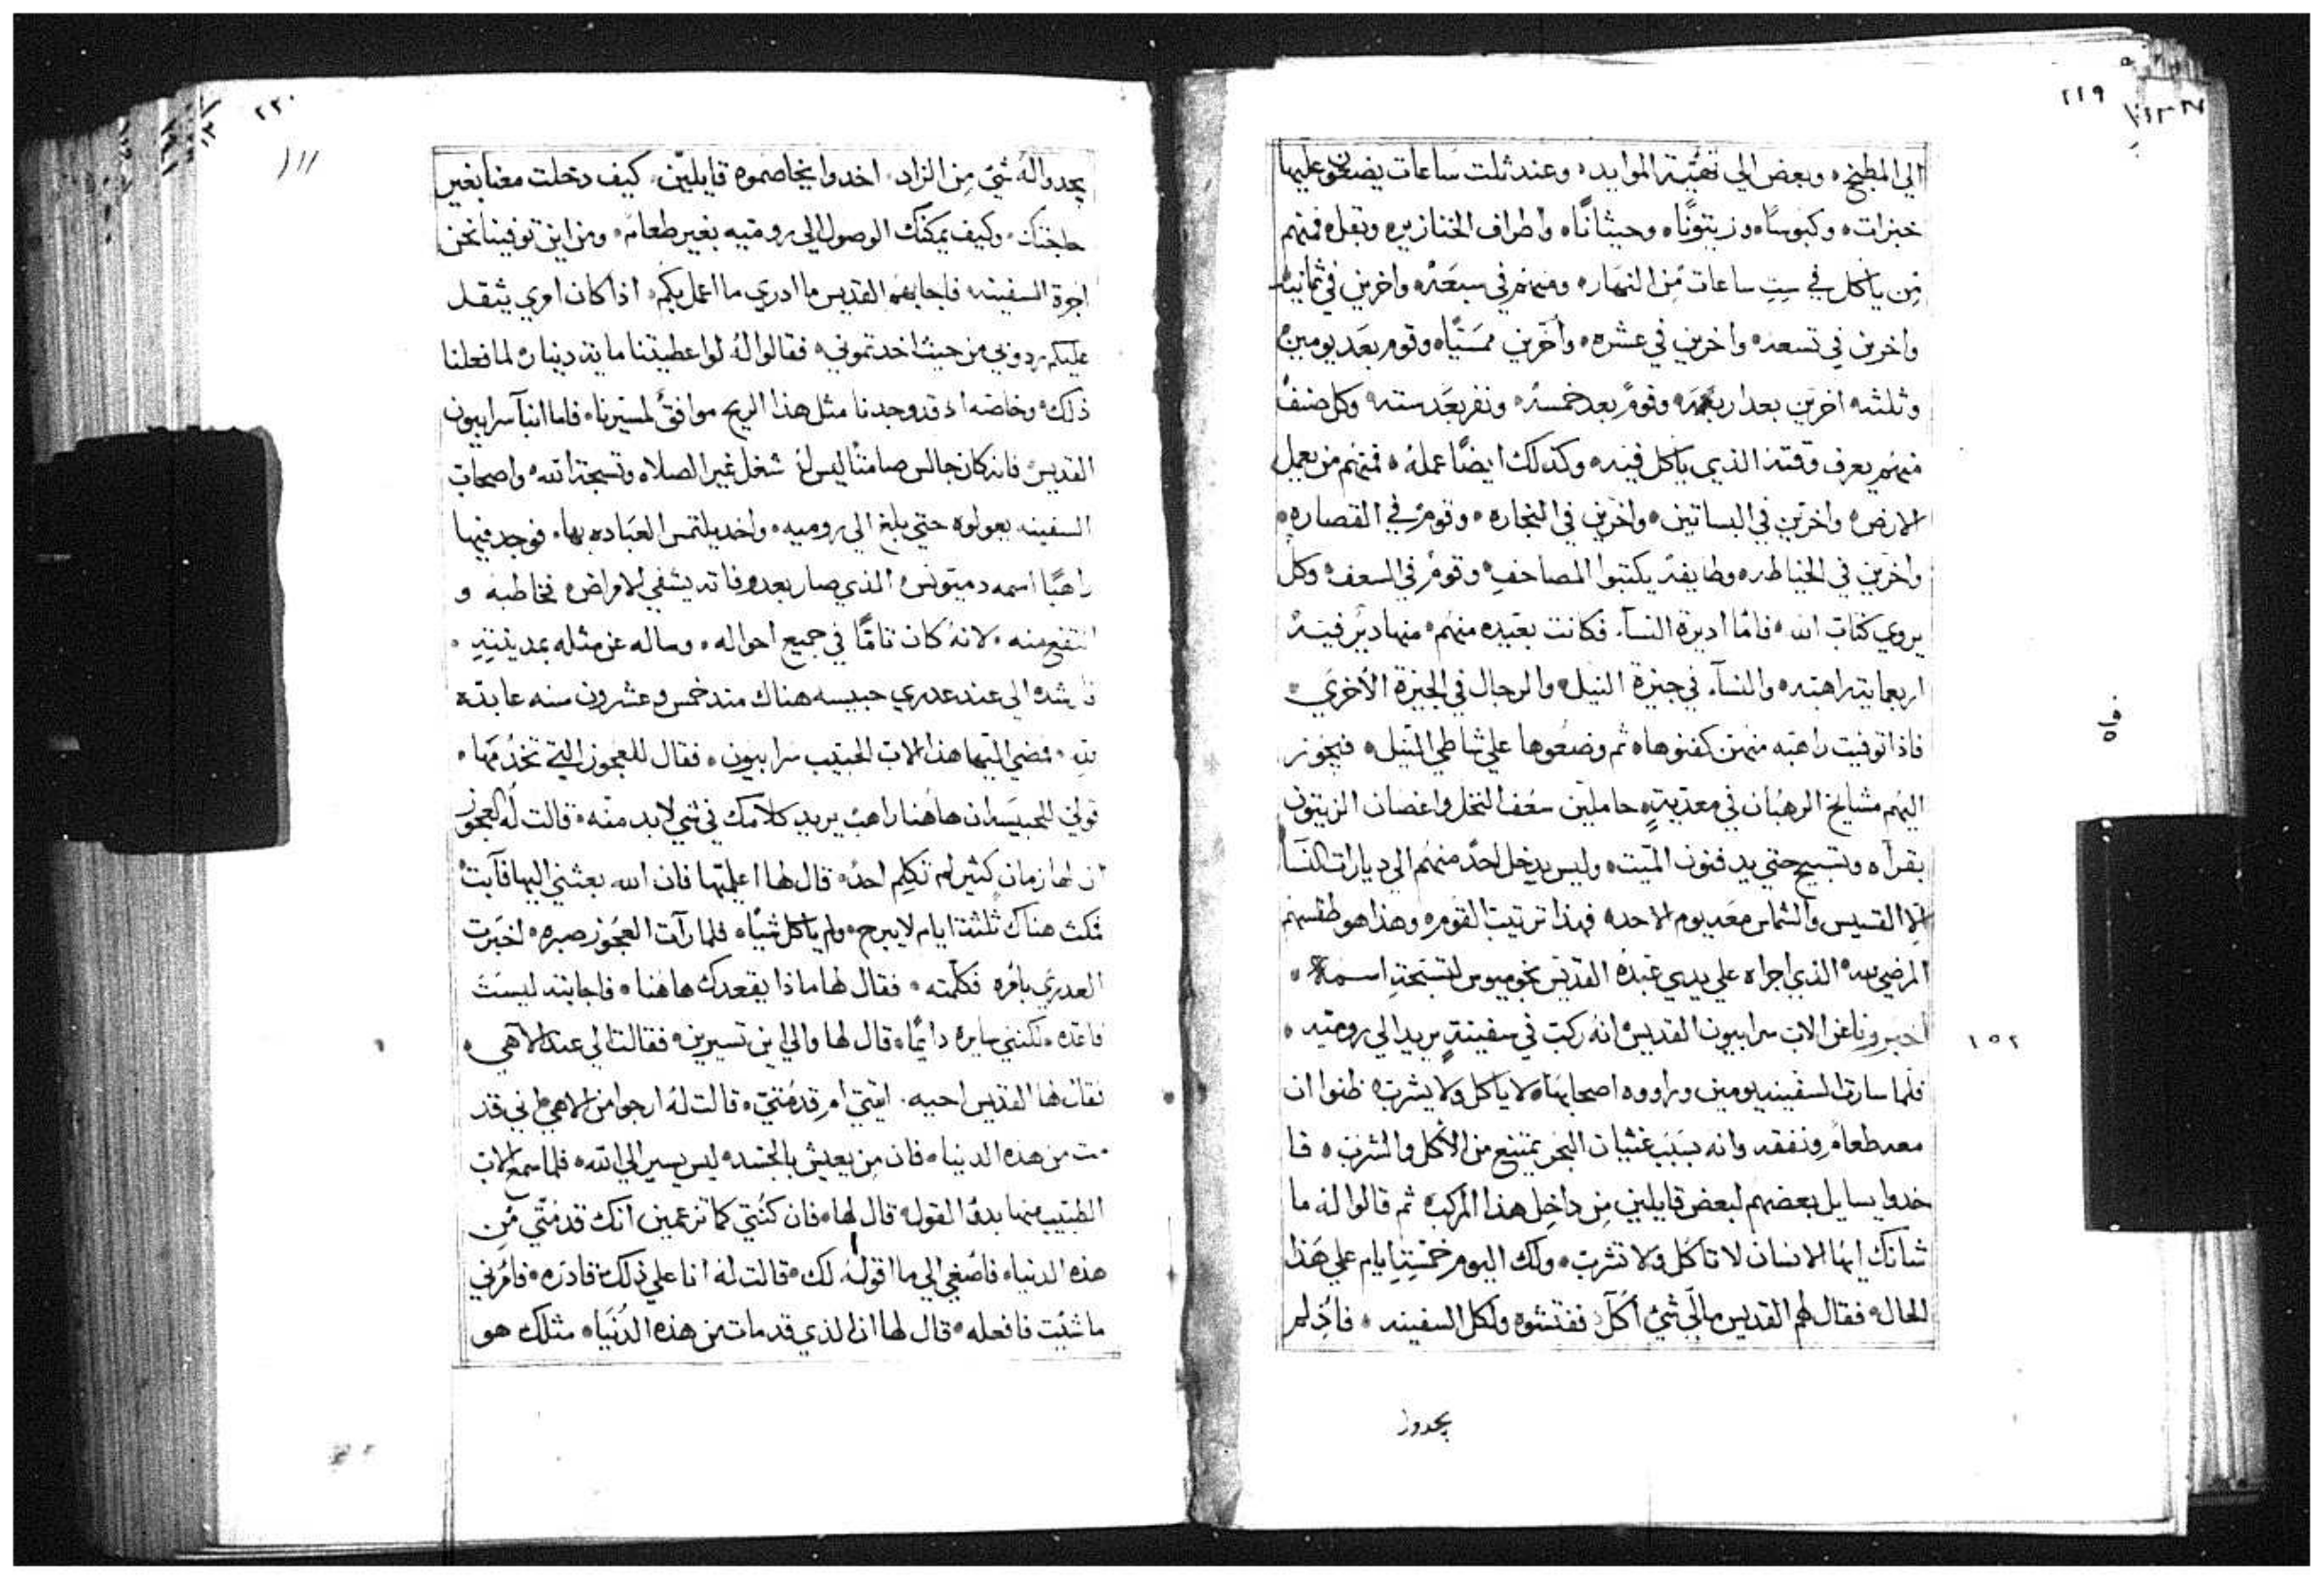 ٢١٩
الي المطبخ، وبعض الي تهيّية الموايد، وعند ثلت ساعات يضعون عليها
خبزات، وكبوسًا، وزيتونًا، وجبنًا، واطراف الخنازير، وبقل، فمنهم
مِن ياكل في ستِ ساعات مِن النهار، ومنهم في سبعَة، واخرين في ثمانية
واخرين في تسعة، واخرين في عشره، وآخرين ممسّيًا، وقوم بعَد يومين
وثلثه اخرين بعد اربعَه، وقومٌ بعد خمسة، ونفر بعَد سته، وكل صنفٌ
منهم يعرف وقته الذي ياكل فيه، وكذلك ايضًا عملهُ، فمنهم من يعمل
الارض، واخرين في البساتين، واخرين في النجاره، وقومٌ في القصاره،
واخرين في الخياطه، وطايفة يكتبوا المصاحف، وقومٌ في السعف، وكل
يروي كتاب الله، فامّا اديرة النسآ، فكانت بعَيده منهم، منها ديرٌ فيه
اربعماية راهبة، والنسآ، في جيزة النيل، والرجال في الجيزة الاُخري،
فاذا توفيت راهبه منهن كفنوها، ثم وضعُوها علي شاطي النيل، فيجُوز
اليهم مشايخ الرهبان في معديةٍ، حاملين سعَف النخل واغصان الزيتون
بقرآه وتسبيح حتي يدفنون الميت، وليس يدخل احدٌ منهم الي ديارات النسآ
الا القسيس والشماس معَه يوم الاحد، فهذا ترتيب القوم، وهذا هو طقسهم
المرضي لله، الذي اجراه علي يدي عَبدهُ القديس بخوميوس لتسبحةِ اسمه،
اخبرونا عن الاب سرابيون القديس، انه ركب في سفينةٍ يريد الي روميه،
١٥٢
فلما سارت السفينه يومين وراووه اصحابها، لا ياكل ولا يشرب، ظنوا ان
معه طعام ونفقه وانه بسَبَب غثيان البَحر يمتنع من الاكل والشرب، فا
خدوا يسايل بعضهم لبعض قايلين مِن داخِل هذا المركب، ثم قالوا له ما
شانك ايها الانسان لا تاكل ولا تشرب، ولك اليوم خمسة ايام علي هَذا
الحال، فقال لهم القديس مالي شيٌ آكل، ففتشوه وكل السفينه، فاذ لم
يجدوا
٢٢٠
111
يجدوا لهُ شيٌ مِن الزاد، اخدوا يخاصموه قايلين، كيف دخلت معنا بغير
حاجتك، وكيف يمكنك الوصول الي روميه بغير طعام، ومن اين توفينا نحن
اجرة السفينه، فاجابهم القديس ما ادري ما اعمل بكم، اذا كان امري يثقل
عليكم ردوني من حيث اخدتموني، فقالوا لهُ لو اعطيتنا ماية دينار، لما فعلنا
ذلك، وخاصه اذ قد وجدنا مثل هذا الريح موافقٌ لمسيرنا، فاما انبآ سرابيون
القديس، فانه كان جالس صامتًا ليس لهُ شغل غير الصلاه وتسبحة الله، واصحاب
السفينه يعولوه حتي بلغ الي روميه، واخد يلتمس العبَاده بها، فوجد فيها
راهبًا اسمه دميتونس، الذي صار بعد وفاته يشفي الامراض، فخاطبه و
انتفع منه، لانهُ كان تامًا في جميع احواله، وساله عن مثله بمدينتهِ،
فارشده الي عند عدري حبيسه هناك مند خمس وعشرون سنه عابدة
للهِ، فمضي اليها هذا الاب الحبيب سرابيون، فقال للعَجوز التي تخدُمَها،
قولي للحبيسَه ان هاهُنا راهبٌ يريد كلامك في شي لابد منه، قالت له العجوز
ان لها زمان كثير لم تكلم احدٌ، قال لها اعلميها فان الله بعثني اليها فآبت
فمكث هناك ثلثة ايام لا يبرح، ولم ياكل شيًا، فلما رآت العجَوز صبره، اخبَرت
العدري بامُره فكلمته، فقال لها ماذا يقعدك هاهُنا، فاجابته ليسَت
قاعَده، لكنني سايره دايمًا، قال لها والي اين تسيرين، فقالت الي عند الآهي،
فقال لها القديس احيه انتي ام قد مُتي، قالت لهُ ارجوا من الاهي اني قد
مت من هذه الدنيا، فان من يعيش بالجسَد، ليس يسير الي الله، فلما سمع الاب
الطبيب منها بدو القول، قال لها، فان كنتي كما تزعمين انك قد مُتّي مِن
هذه الدنيا، فاصُغي الي ما اقولهُ لك، قالت لهُ انا علي ذلك قادره، فامُرني
ما شيُت فافعله، قال لها ان الذي قد مات من هذه الدُنيَا، مثلك هو